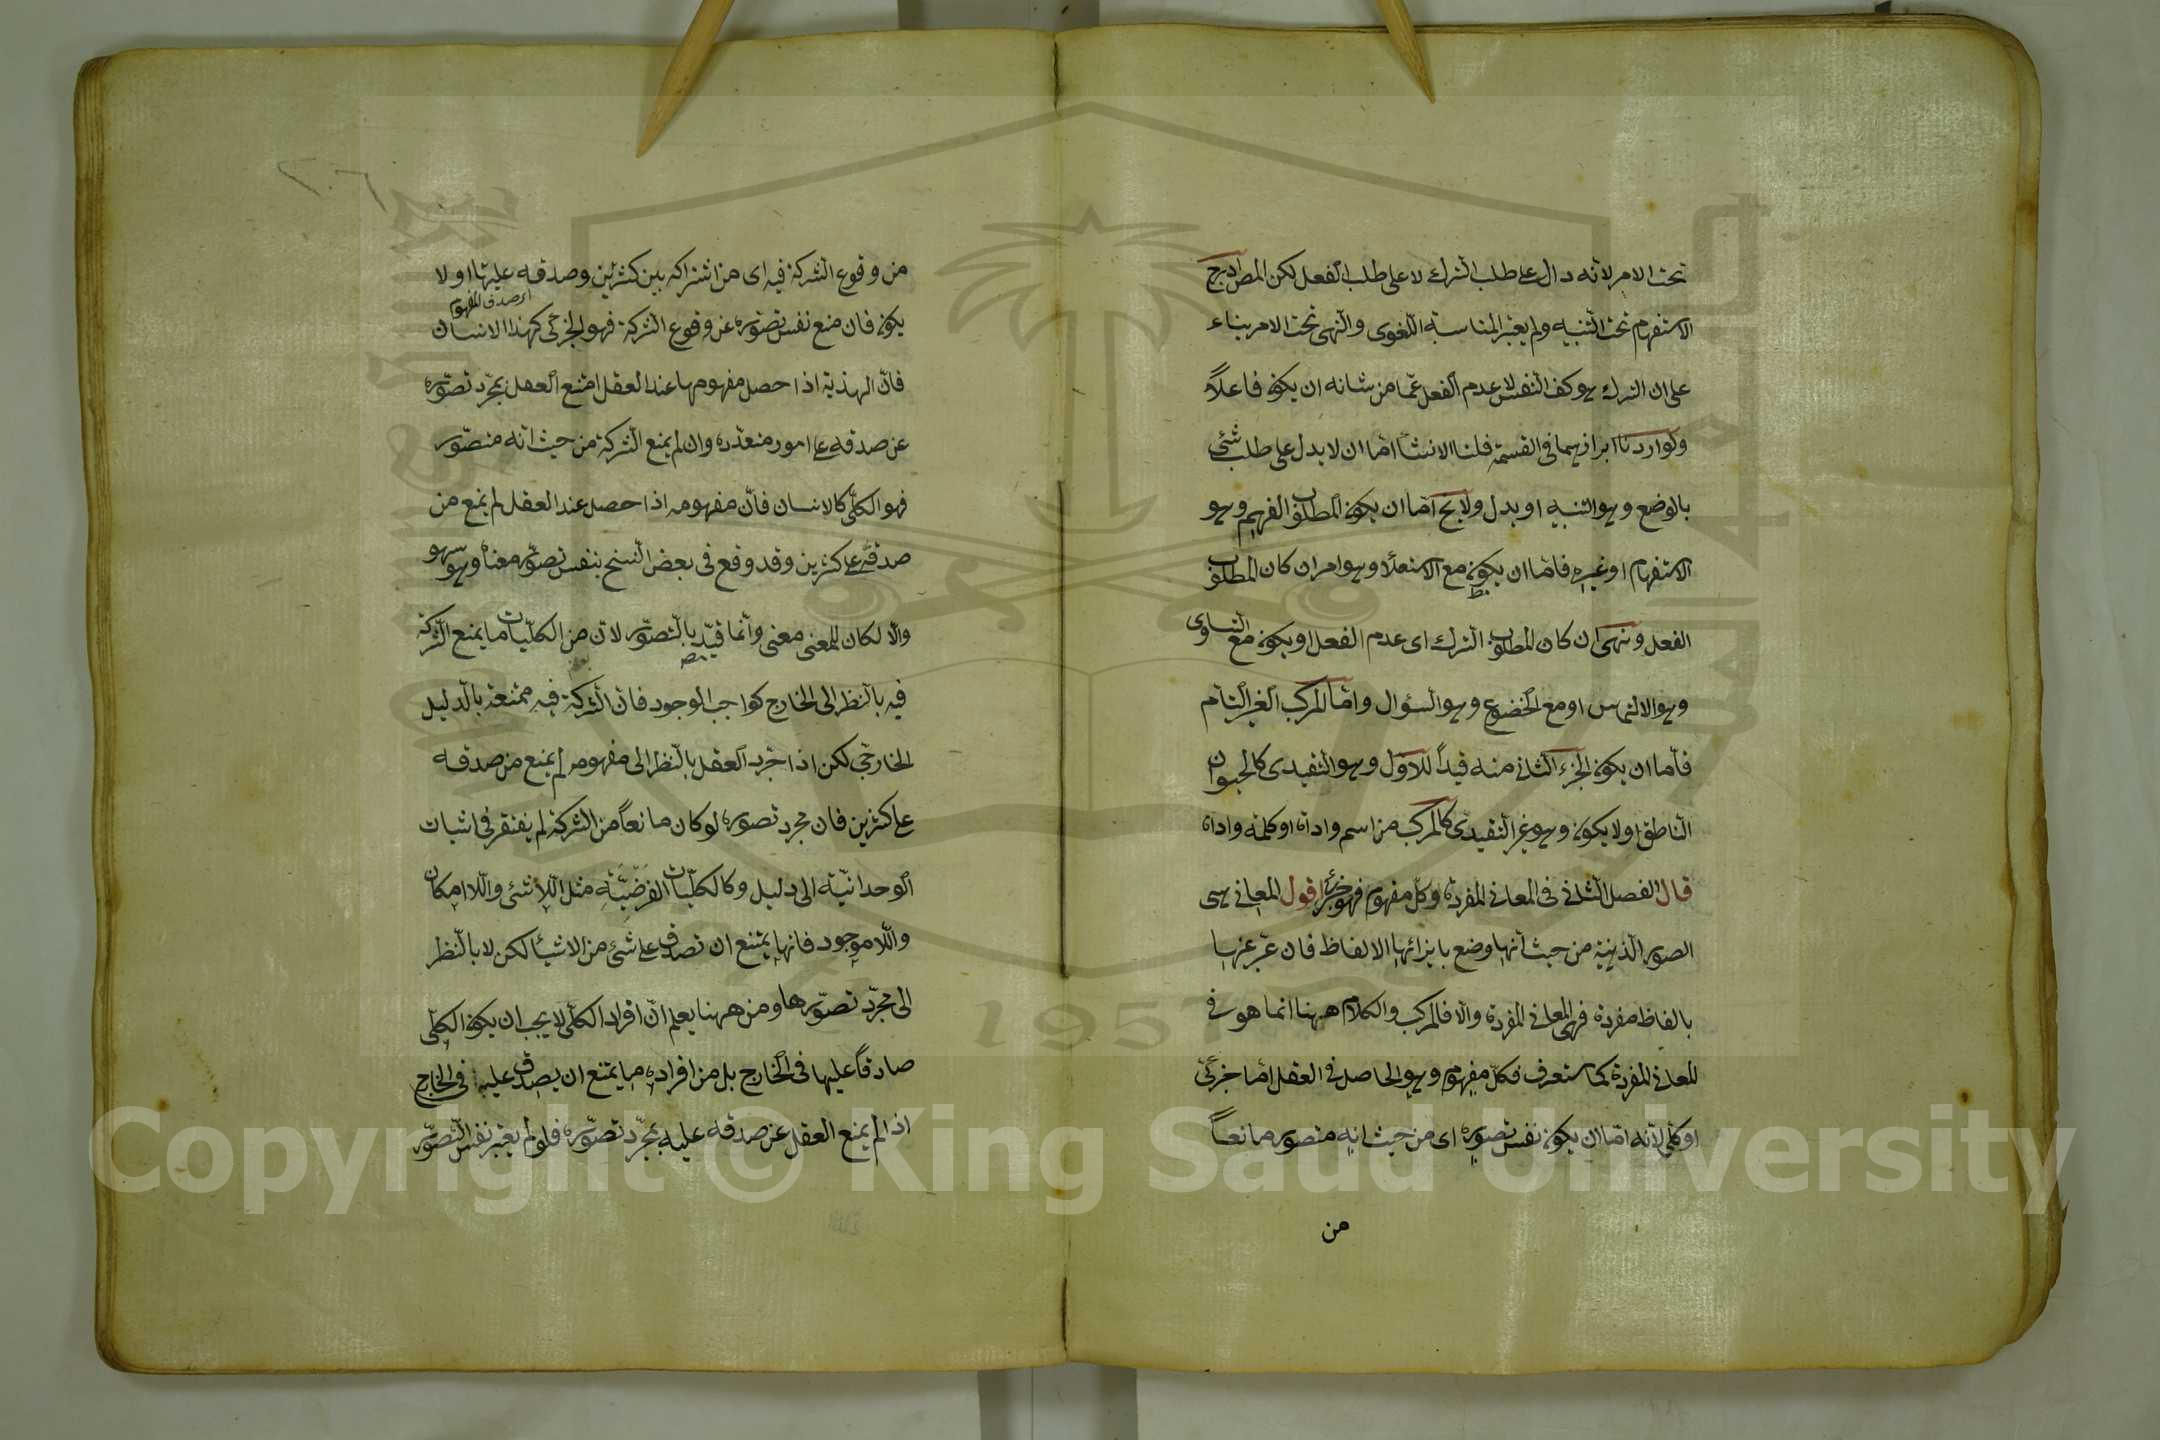 تحت الامر لانه دال على طلب الترك لا على طلب الفعل لكن المص ادرج
الاستفهام تحت التنبيه ولم يعتبر المناسبة اللغوى والنهى تحت الامر بناء
على ان الترك هو كف النفس لا عدم الفعل عما من شانه ان يكون فاعلاً
ولو اردنا ايرادهما فى القسمة قلنا الانشا اما ان لا يدل على طلب شئ
بالوضع وهو التنبيه او يدل ولا يخ اما ان يكون المطلوب الفهم وهو
الاستفهام او غيره فاما ان يكون مع الاستعلا وهو امر ان كان المطلوب
الفعل ونهى ان كان المطلوب الترك اى عدم الفعل او يكون مع التساوى
وهو الالتماس او مع الخضوع وهو السؤال واما المركب الغير التام
فاما ان يكون الجزء الثانى منه قيداً للاول وهو التقيدى كالحيوان
الناطق او لا يكون وهو غير التقيدى كالمركب من اسم واداة او كلمة واداة
قال الفصل الثانى فى المعانى المفردة وكل مفهوم فهو جزئى اقول المعانى هى
الصور الذهنية من حيث انها وضع بازائها الالفاظ فان عبر عنها
بالفاظ مفردة فهى المعانى المفردة والا فالمركب والكلام ههنا انما هو فى
المعانى المفردة كما ستعرف فكل مفهوم وهو الحاصل فى العقل اما جزئى
او كلى لانه اما ان يكون نفس تصوره اى من حيث انه متصور مانعاً
من
من وقوع الشركة فيه اى من اشتراكه بين كثيرين وصدقه عليها او لا
اى صدق المفهوم
يكون فان منع نفس تصوره عن وقوع الشركة فهو الجزئى كهذا الانسان
فان الهذية اذا حصل مفهومها عند العقل امتنع العقل بمجرد تصوره
عن صدقه على امور متعددة وان لم يمنع الشركة من حيث انه متصور
فهو الكلى كالانسان فان مفهومه اذا حصل عند العقل لم يمنع من
صدقه على كثيرين وقد وقع فى بعض النسخ بنفس تصور معناه وهو سهو
والا لكان للمعنى معنى وانما قيد بالتصور لان من الكليات ما يمنع الشركة
فيه بالنظر الى الخارج كواجب الوجود فان الشركة فيه ممتنعة بالدليل
الخارجى لكن اذا جرد العقل بالنظر الى مفهومه لم يمنع من صدقه
على كثيرين فان مجرد تصوره لو كان مانعاً من الشركة لم يفتقر فى اثبات
الوحدانية الى دليل وكالكليات الفرضية مثل اللاشئ واللا امكان
واللا موجود فانها يمتنع ان تصدق على شئ من الاشيا لكن لا بالنظر
الى مجرد تصورها ومن ههنا يعلم ان افراد الكلى لا يجب ان يكون الكلى
صادقاً عليها فى الخارج بل من افراده ما يمتنع ان يصدق عليه فى الخارج
اذا لم يمنع العقل عن صدقه عليه بمجرد تصوره فلو لم يعتبر نفس التصور
1957
Copyright © King Saud University